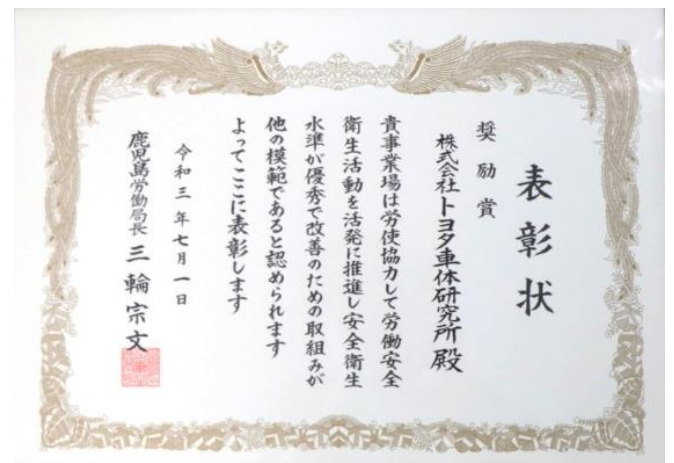 表彰状
奨励賞
株式会社トヨタ車体研究所 殿
貴事業場は労使協力して労働安全
衛生活動を活発に推進し安全衛生
水準が優秀で改善のための取組みが
他の模範であると認められます
よってここに表彰します
令和三年七月一日
鹿児島労働局長 三輪宗文